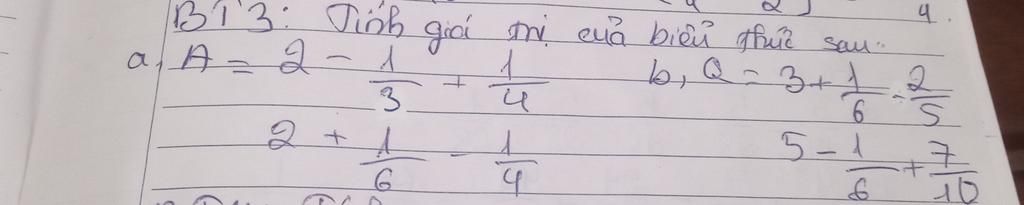 BT3: Tính giá trị của biểu thức sau:
a, A = 2 - 1/3 + 1/4 b, Q = 3 + 1/6 - 2/5
2 + 1/6 - 1/4 5 - 1/6 + 7/10